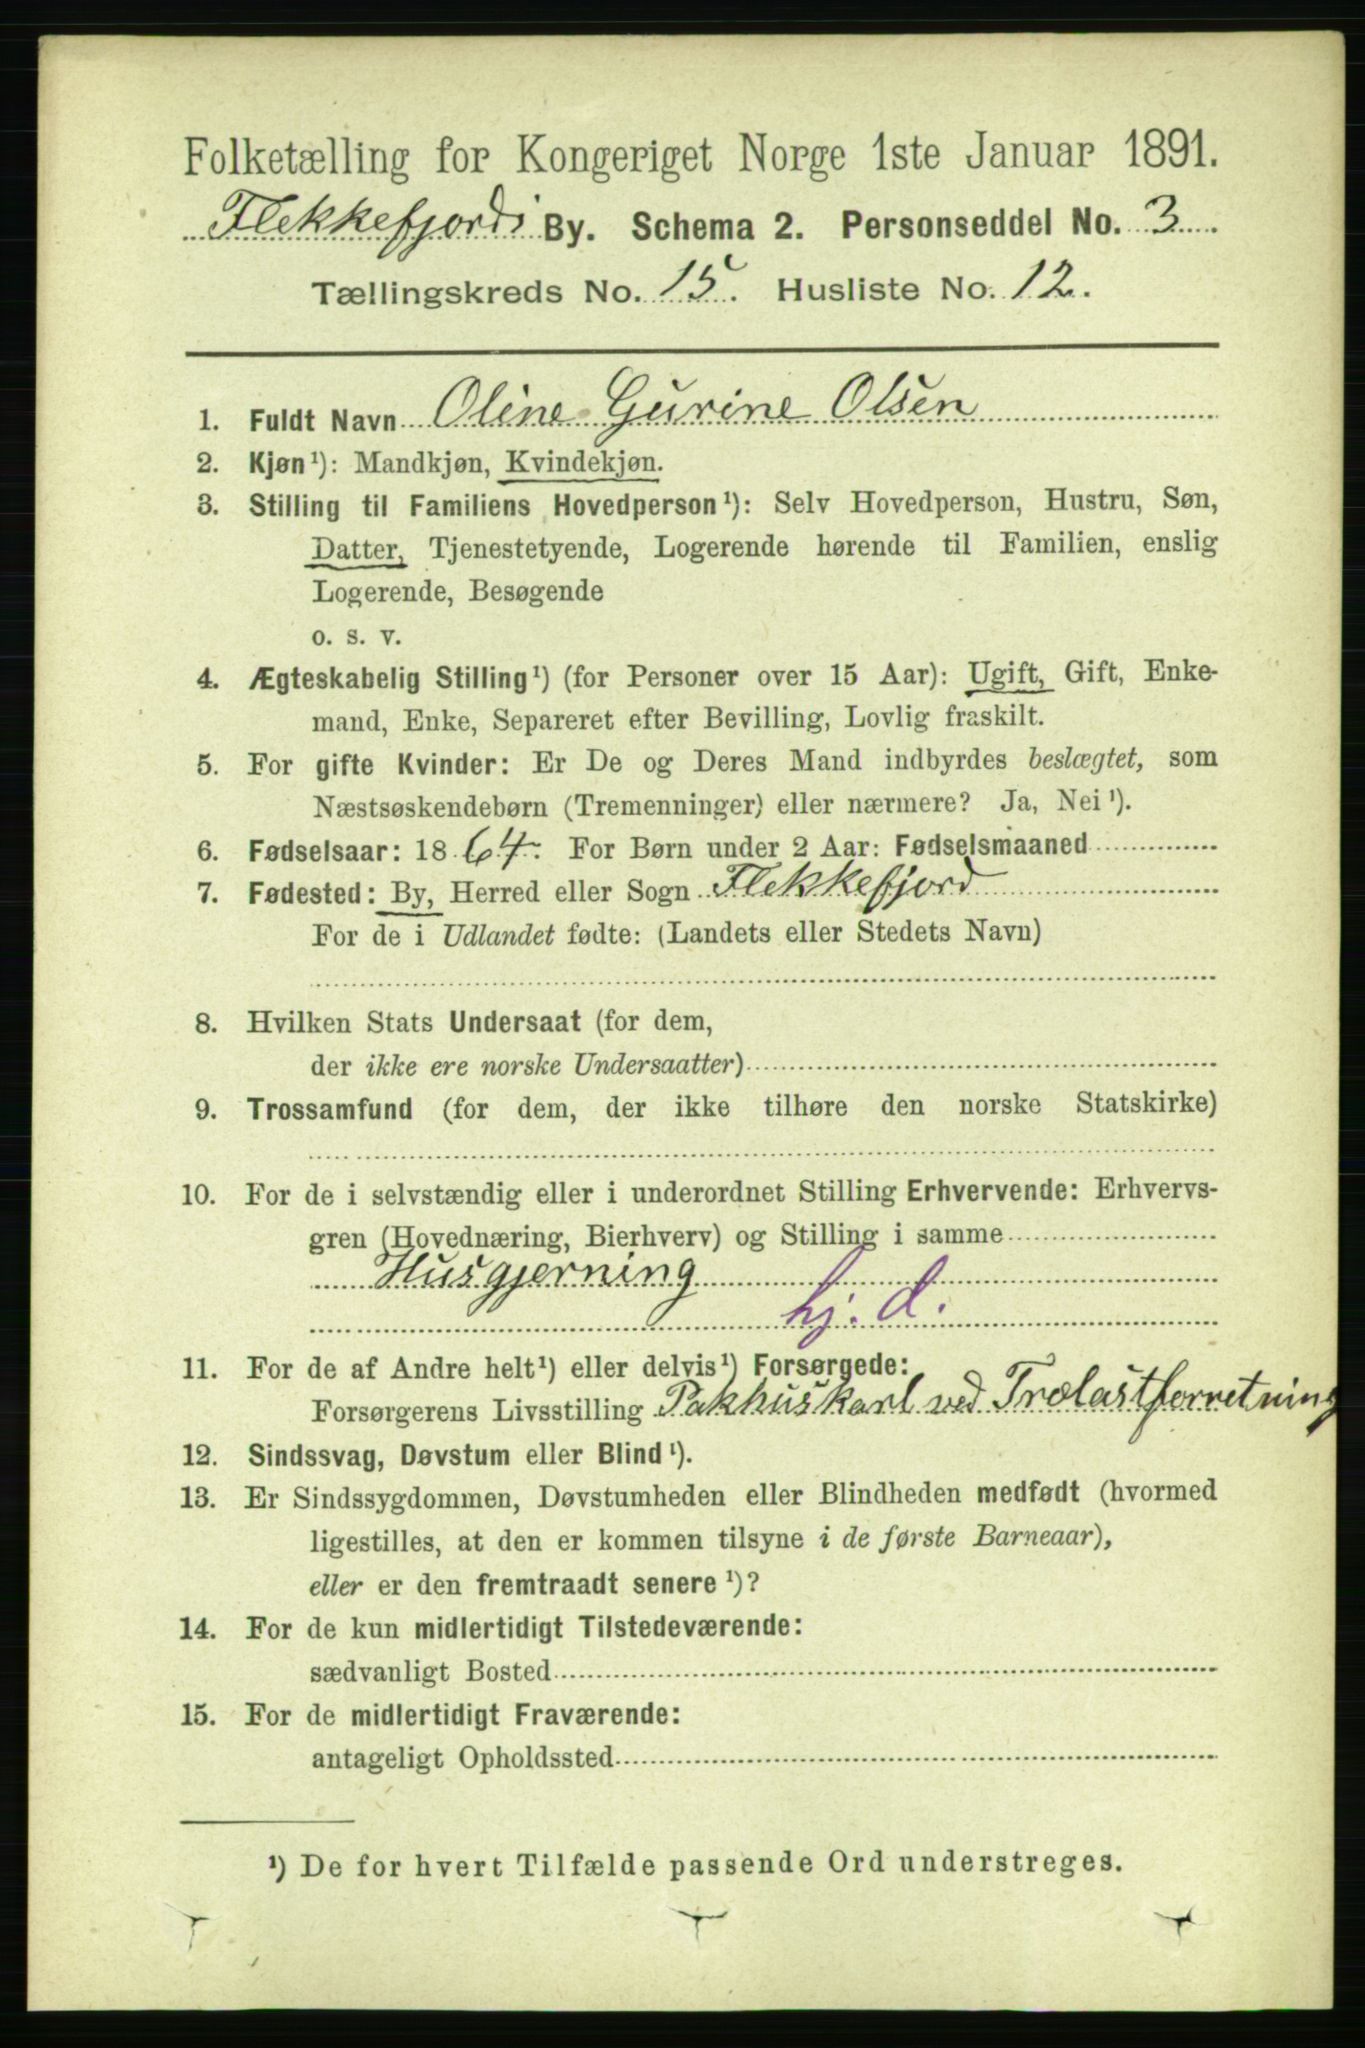 Folketælling for Kongeriget Norge 1ste Januar 1891.
Flekkefjords By. Schema 2. Personseddel No. 3
Tællingskreds No. 15. Husliste No. 12.
1. Fuldt Navn Oline Gurine Olsen
2. Kjøn¹): Mandkjøn, Kvindekjøn.
3. Stilling til Familiens Hovedperson¹): Selv Hovedperson, Hustru, Søn,
Datter, Tjenestetyende, Logerende hørende til Familien, enslig
Logerende, Besøgende
o. s. v.
4. Ægteskabelig Stilling¹) (for Personer over 15 Aar): Ugift, Gift, Enke-
mand, Enke, Separeret efter Bevilling, Lovlig fraskilt.
5. For gifte Kvinder: Er De og Deres Mand indbyrdes beslægtet, som
Næstsøskendebørn (Tremenninger) eller nærmere? Ja, Nei¹).
6. Fødselsaar: 1864. For Børn under 2 Aar: Fødselsmaaned
7. Fødested: By, Herred eller Sogn Flekkefjord
For de i Udlandet fødte: (Landets eller Stedets Navn)
8. Hvilken Stats Undersaat (for dem,
der ikke ere norske Undersaatter)
9. Trossamfund (for dem, der ikke tilhøre den norske Statskirke)
10. For de i selvstændig eller i underordnet Stilling Erhvervende: Erhvervs-
gren (Hovednæring, Bierhverv) og Stilling i samme
Husgjerning
hj. d.
11. For de af Andre helt¹) eller delvis¹) Forsørgede:
Forsørgerens Livsstilling Pakhuskarl ved Trælastforretning
12. Sindssvag, Døvstum eller Blind¹).
13. Er Sindssygdommen, Døvstumheden eller Blindheden medfødt (hvormed
ligestilles, at den er kommen tilsyne i de første Barneaar),
eller er den fremtraadt senere¹)?
14. For de kun midlertidigt Tilstedeværende:
sædvanligt Bosted
15. For de midlertidigt Fraværende:
antageligt Opholdssted
¹) De for hvert Tilfælde passende Ord understreges.